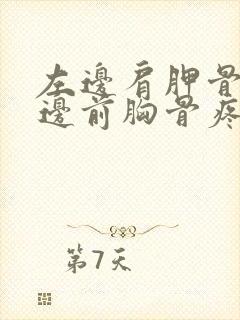 左邊肩胛骨
邊前胸骨疼
第7天